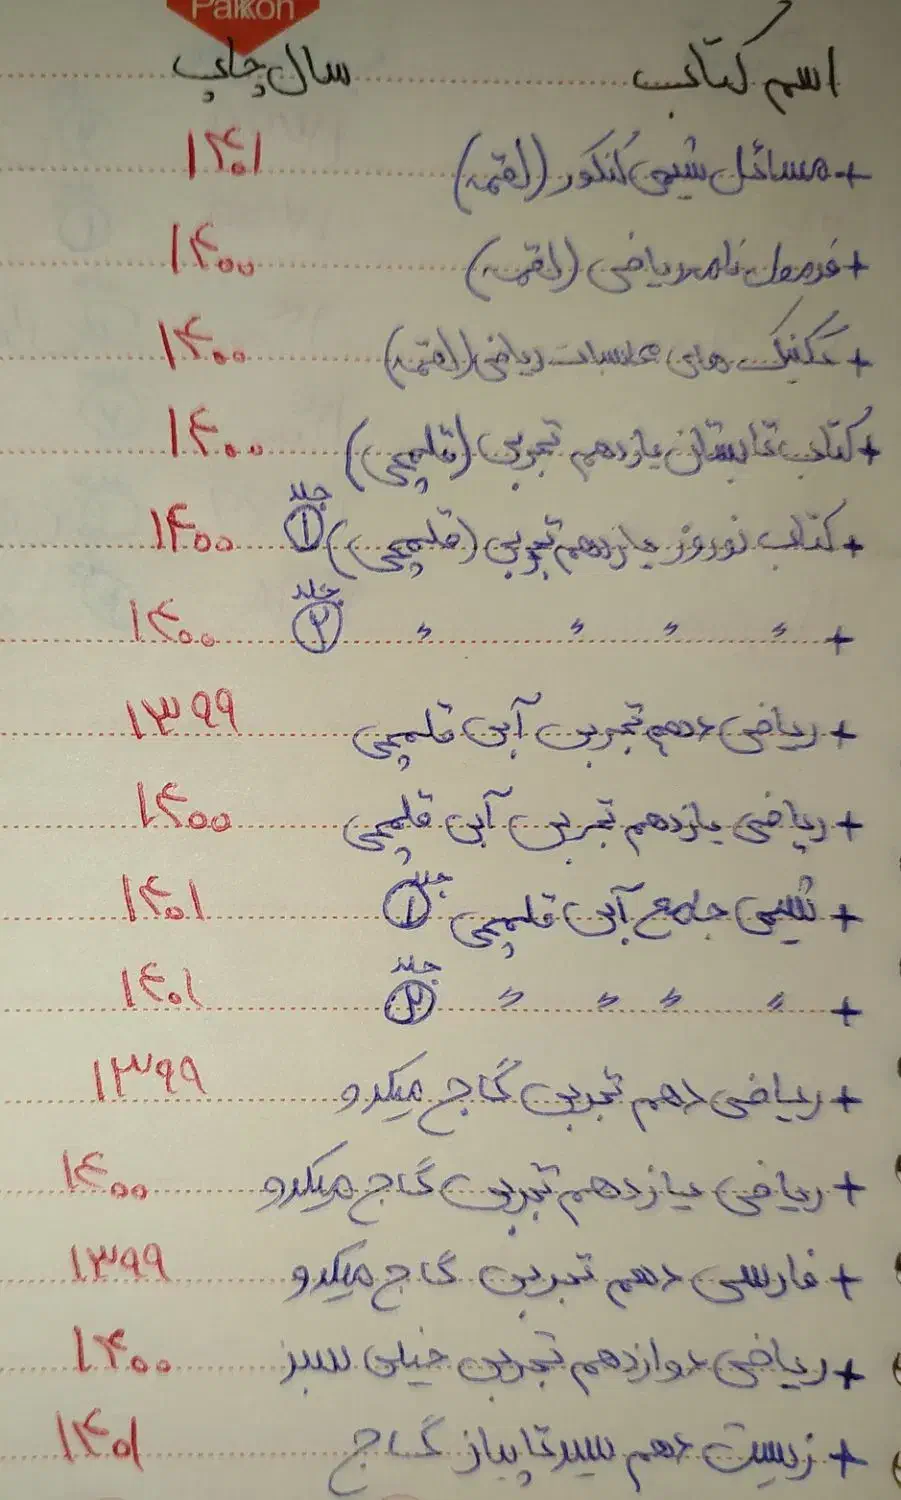 Palkon
اسم کتاب سال چاپ
+ مسائل شیمی کنکور (لقمه) ۱۴۰۱
+ فرمول نامه ریاضی (لقمه) ۱۴۰۰
+ تکنیک های محاسبات ریاضی (لقمه) ۱۴۰۰
+ کتاب تابستان یازدهم تجربی (قلمچی) ۱۴۰۰
+ کتاب نوروز یازدهم تجربی (قلمچی) جلد ۱ ۱۴۰۰
+ " " " " جلد ۲ ۱۴۰۰
+ ریاضی دهم تجربی آبی قلمچی ۱۳۹۹
+ ریاضی یازدهم تجربی آبی قلمچی ۱۴۰۰
+ شیمی جامع آبی قلمچی جلد ۱ ۱۴۰۱
+ " " " " جلد ۲ ۱۴۰۱
+ ریاضی دهم تجربی گاج میکرو ۱۳۹۹
+ ریاضی یازدهم تجربی گاج میکرو ۱۴۰۰
+ فارسی دهم تجربی گاج میکرو ۱۳۹۹
+ ریاضی دوازدهم تجربی خیلی سبز ۱۴۰۰
+ زیست دهم سیر تا پیاز گاج ۱۴۰۱